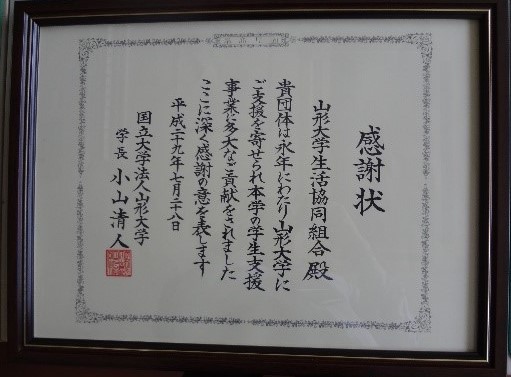 感謝状
山形大学生活協同組合殿
貴団体は永年にわたり山形大学に
ご支援を寄せられ本学の学生支援
事業に多大なご貢献をされました
ここに深く感謝の意を表します
平成二十九年七月二十八日
国立大学法人山形大学
学長 小山清人